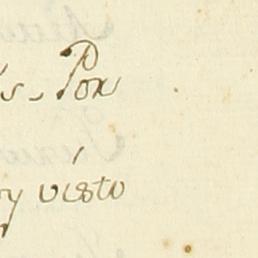 s, Por
y visto